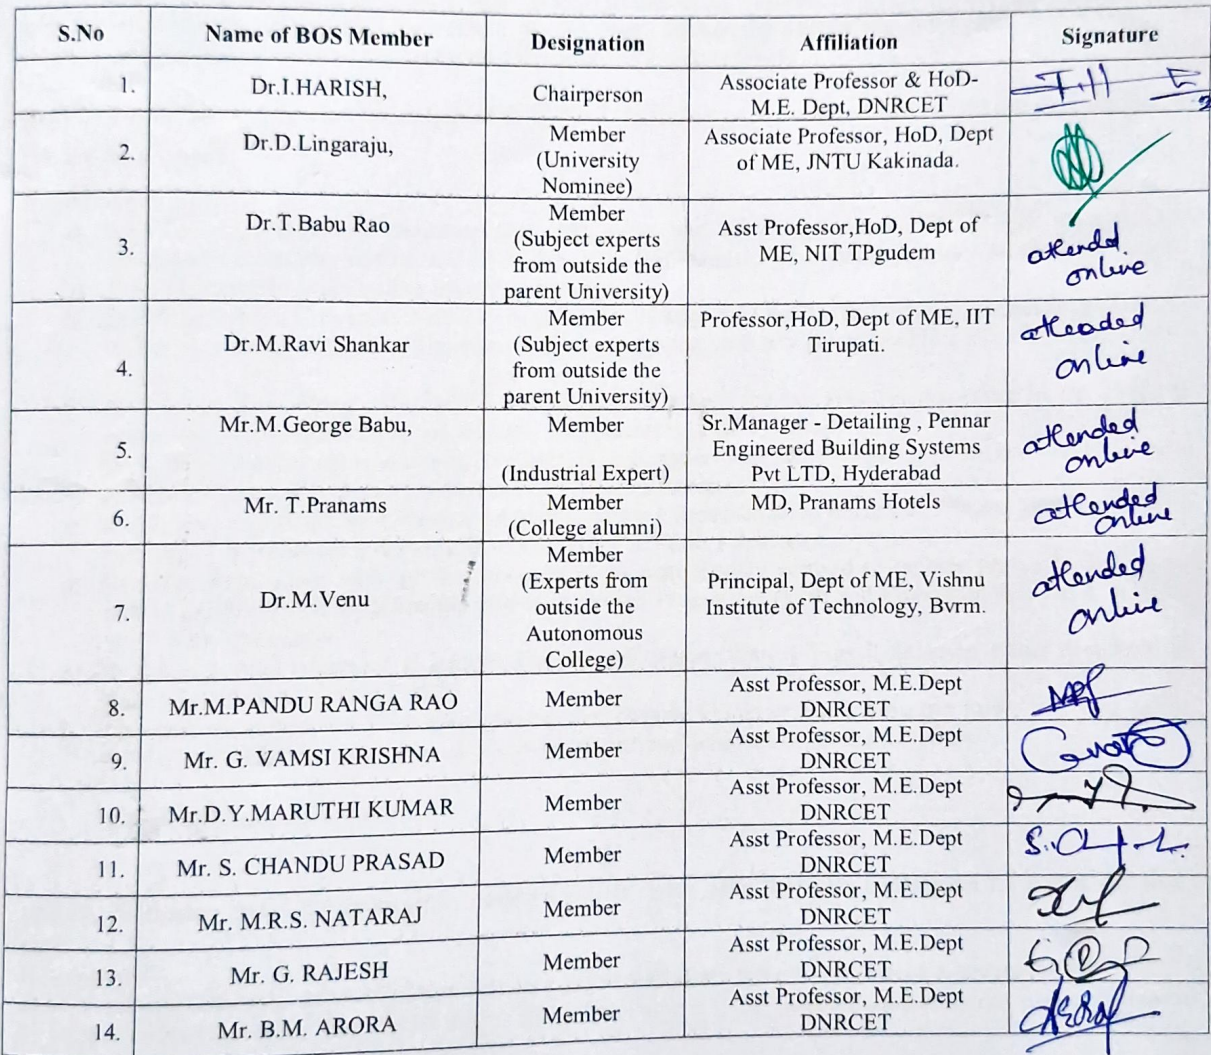 S.No Name of BOS Member Designation Affiliation Signature
1. Dr.I.HARISH, Chairperson Associate Professor & HoD-
M.E. Dept, DNRCET
2. Dr.D.Lingaraju, Member
(University
Nominee)
Associate Professor, HoD, Dept
of ME, JNTU Kakinada.
3. Dr.T.Babu Rao Member
(Subject experts
from outside the
parent University)
Asst Professor,HoD, Dept of
ME, NIT TPgudem
attended
online
4. Dr.M.Ravi Shankar Member
(Subject experts
from outside the
parent University)
Professor,HoD, Dept of ME, IIT
Tirupati.
attended
online
5. Mr.M.George Babu, Member
(Industrial Expert)
Sr.Manager - Detailing , Pennar
Engineered Building Systems
Pvt LTD, Hyderabad
attended
online
6. Mr. T.Pranams Member
(College alumni)
MD, Pranams Hotels
attended
online
7. Dr.M.Venu Member
(Experts from
outside the
Autonomous
College)
Principal, Dept of ME, Vishnu
Institute of Technology, Bvrm.
attended
online
8. Mr.M.PANDU RANGA RAO Member Asst Professor, M.E.Dept
DNRCET
9. Mr. G. VAMSI KRISHNA Member Asst Professor, M.E.Dept
DNRCET
10. Mr.D.Y.MARUTHI KUMAR Member Asst Professor, M.E.Dept
DNRCET
11. Mr. S. CHANDU PRASAD Member Asst Professor, M.E.Dept
DNRCET
12. Mr. M.R.S. NATARAJ Member Asst Professor, M.E.Dept
DNRCET
13. Mr. G. RAJESH Member Asst Professor, M.E.Dept
DNRCET
14. Mr. B.M. ARORA Member Asst Professor, M.E.Dept
DNRCET